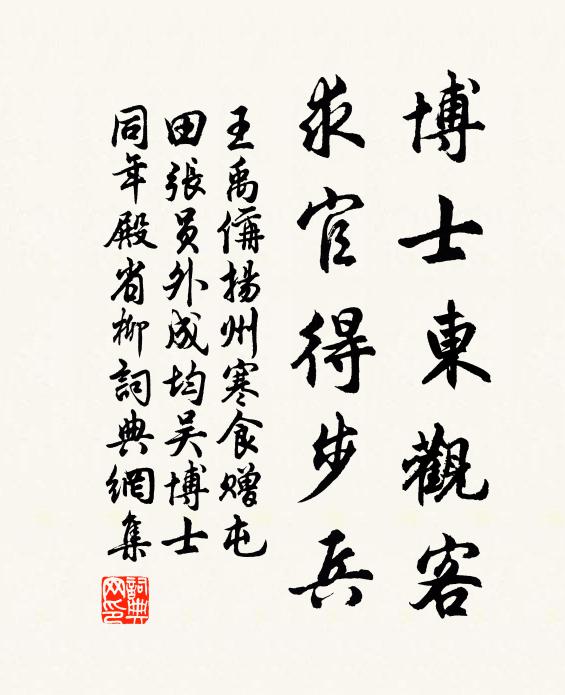 博士東觀客
求官得步兵
王禹偁揚州寒食贈屯
田張員外成均吴博士
同年殿省柳詞典網集
詞典網印